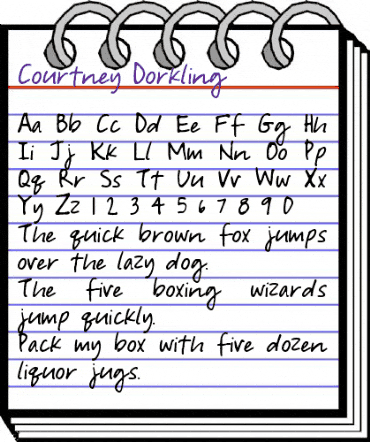 Courtney Dorkling
Aa Bb Cc Dd Ee Ff Gg Hh
Ii Jj Kk Ll Mm Nn Oo Pp
Qq Rr Ss Tt Uu Vv Ww Xx
Yy Zz 1 2 3 4 5 6 7 8 9 0
The quick brown fox jumps
over the lazy dog.
The five boxing wizards
jump quickly.
Pack my box with five dozen
liquor jugs.